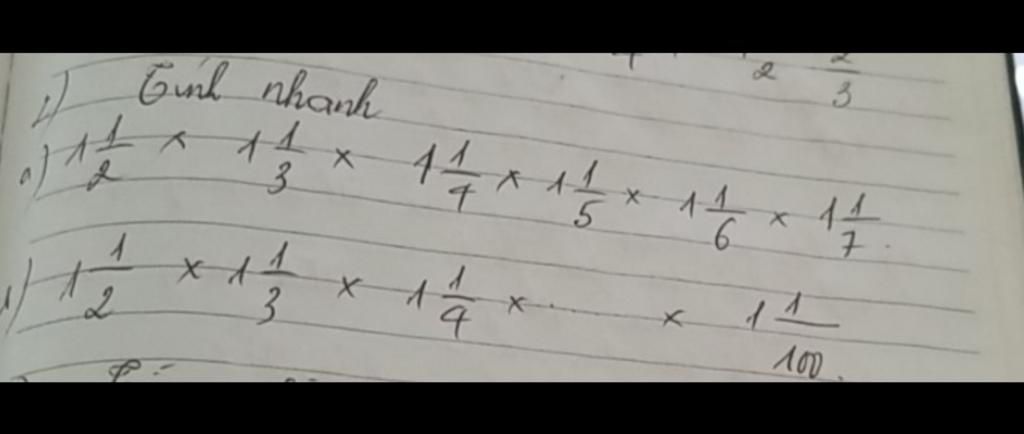 2/3
1) Tính nhanh
a) 1 1/2 × 1 1/3 × 1 1/4 × 1 1/5 × 1 1/6 × 1 1/7.
1 1/2 × 1 1/3 × 1 1/4 × ........ × 1 1/100.